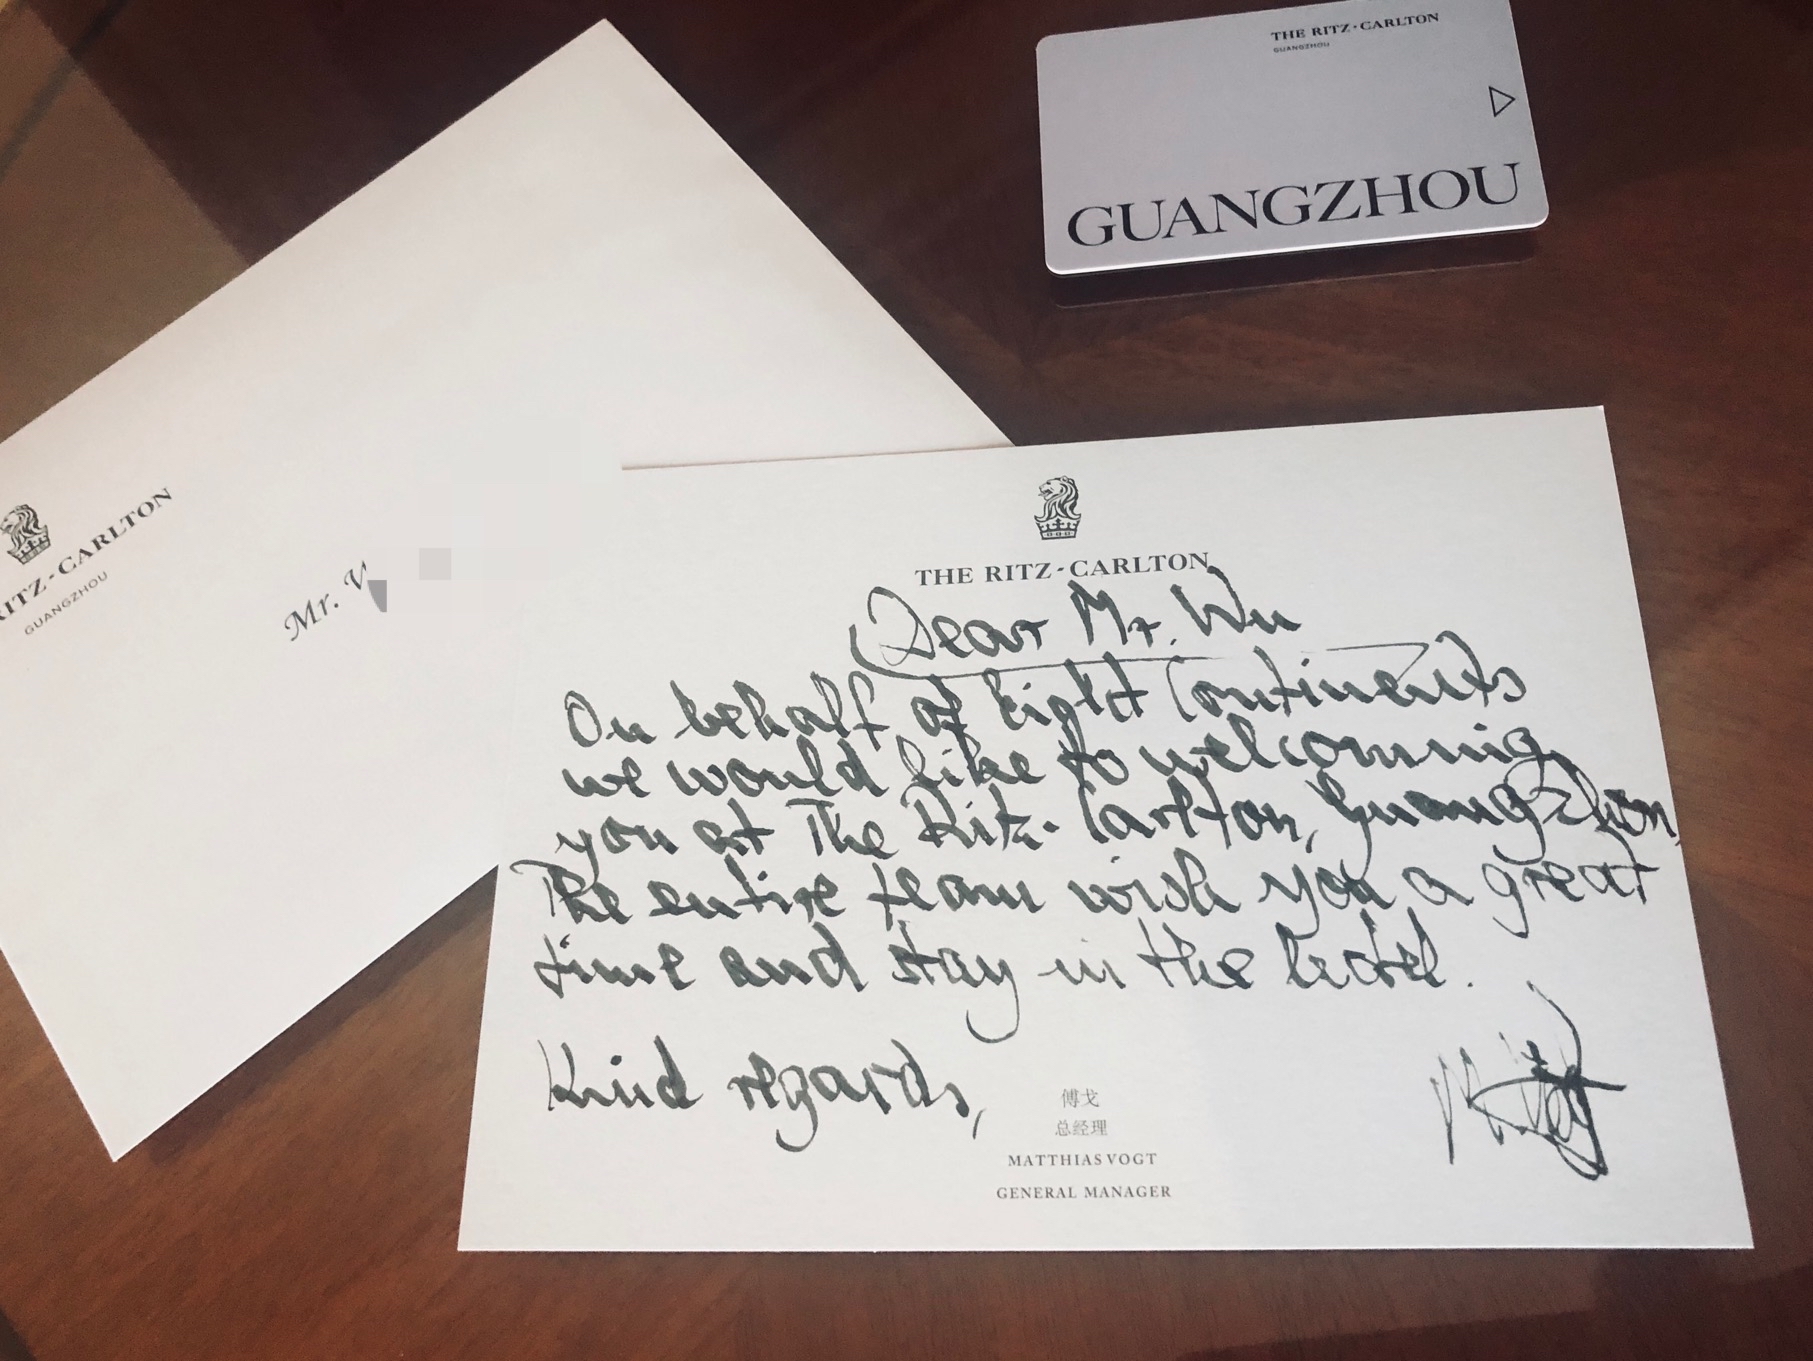 THE RITZ-CARLTON
GUANGZHOU
GUANGZHOU
RITZ-CARLTON
GUANGZHOU
Mr.
THE RITZ-CARLTON
Dear Mr. Wu
On behalf of Eight Continents
we would like to welcoming
you at The Ritz-Carlton, Guangzhou,
The entire team wish you a great
time and stay in the hotel.
Kind regards,
傅戈
总经理
MATTHIAS VOGT
GENERAL MANAGER